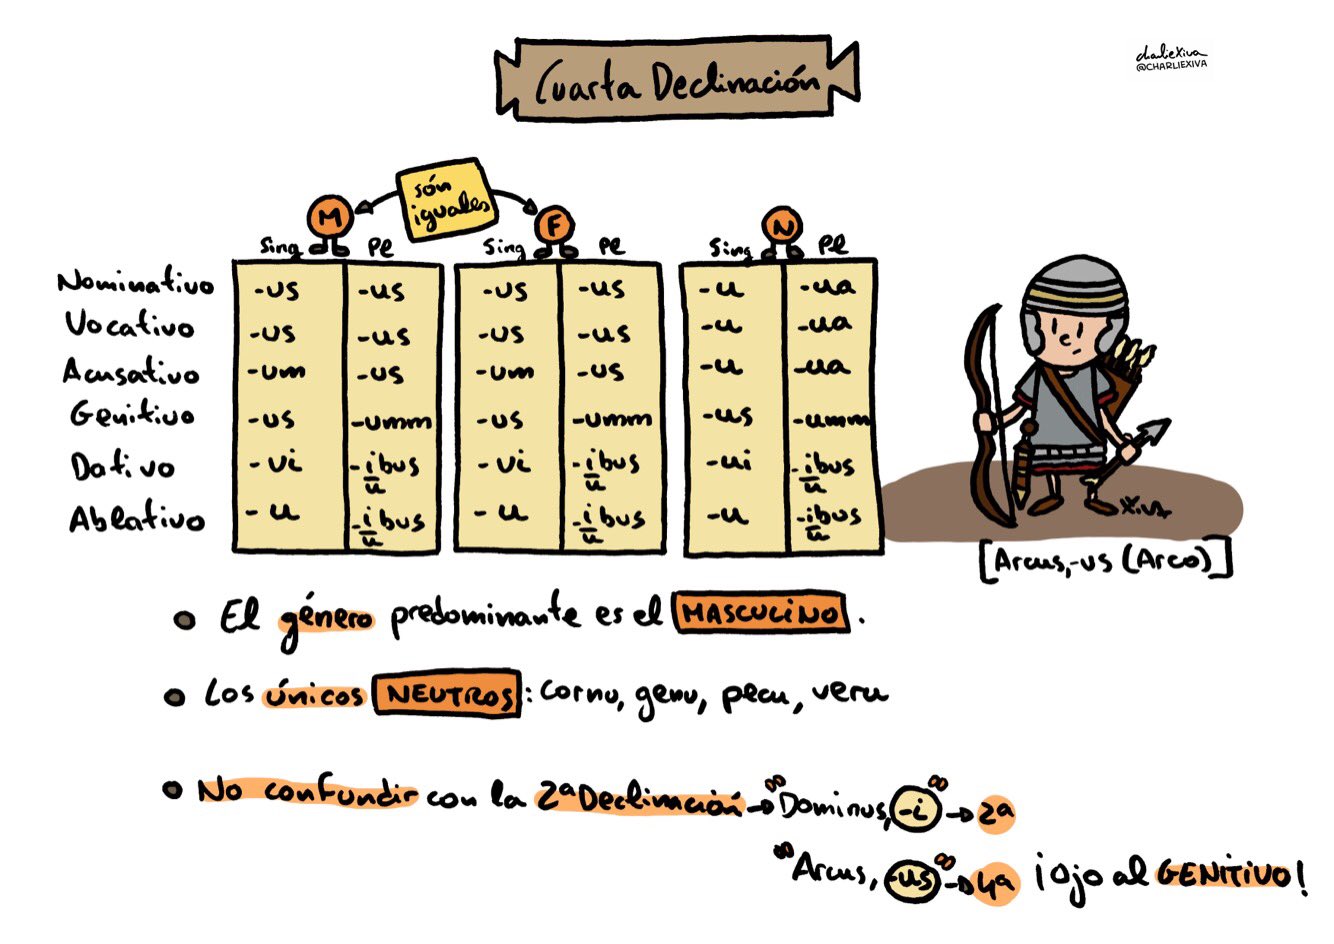 Cuarta Declinación
charliexiva
@CHARLIEXIVA
són
iguales
M F N
Sing Pl Sing Pl Sing Pl
Nominativo -us -us -us -us -u -ua
Vocativo -us -us -us -us -u -ua
Acusativo -um -us -um -us -u -ua
Genitivo -us -umm -us -umm -us -umm
Dativo -vi -ibus -vi -ibus -ui -ibus
u u u
Ablativo -u -ibus -u -ibus -u -ibus
u u u
Xiva
[Arcus,-us (Arco)]
• El género predominante es el MASCULINO.
• Los únicos NEUTROS: cornu, genu, pecu, veru
• No confundir con la 2ª Declinación → "Dominus, -i" → 2ª
"Arcus, -us" → 4ª ¡Ojo al GENITIVO!